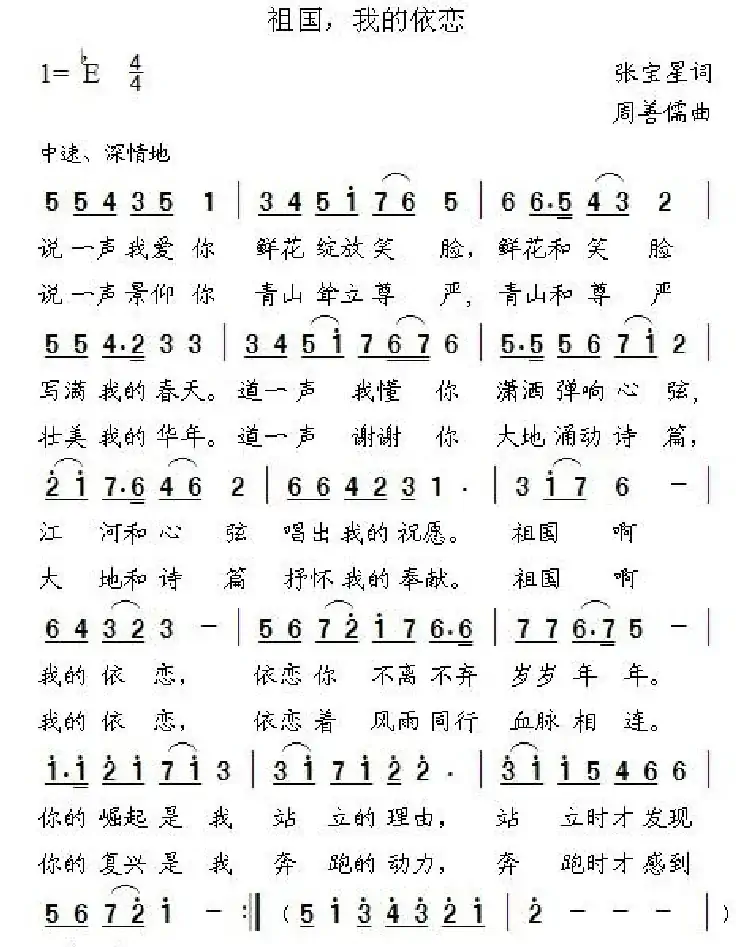 祖国，我的依恋
1= ♭E 4/4
张宝星词
周善儒曲
中速、深情地
5 5 4 3 5 1 | 3 4 5 i 7 6 5 | 6 6·5 4 3 2 |
说一声我爱你 鲜花绽放笑 脸，鲜花和笑 脸
说一声景仰你 青山耸立尊 严，青山和尊 严
5 5 4·2 3 3 | 3 4 5 i 7 6 7 6 | 5·5 5 6 7 i 2 |
写满我的春天。道一声 我懂 你 潇洒弹响心弦，
壮美我的华年。道一声 谢谢 你 大地涌动诗篇，
2 i 7·6 4 6 2 | 6 6 4 2 3 1 · | 3 i 7 6 － |
江 河和心 弦 唱出我的祝愿。 祖国 啊
大 地和诗 篇 抒怀我的奉献。 祖国 啊
6 4 3 2 3 － | 5 6 7 2 i 7 6·6 | 7 7 6·7 5 － |
我的依 恋， 依恋你 不离不弃 岁岁年 年。
我的依 恋， 依恋着 风雨同行 血脉相 连。
i·i 2 i 7 i 3 | 3 i 7 i 2 2 · | 3 i i 5 4 6 6 6 |
你的崛起是 我 站 立的理由， 站 立时才发现
你的复兴是 我 奔 跑的动力， 奔 跑时才感到
5 6 7 2 i － :‖ （ 5 i 3 4 3 2 i | 2 － － － | ）